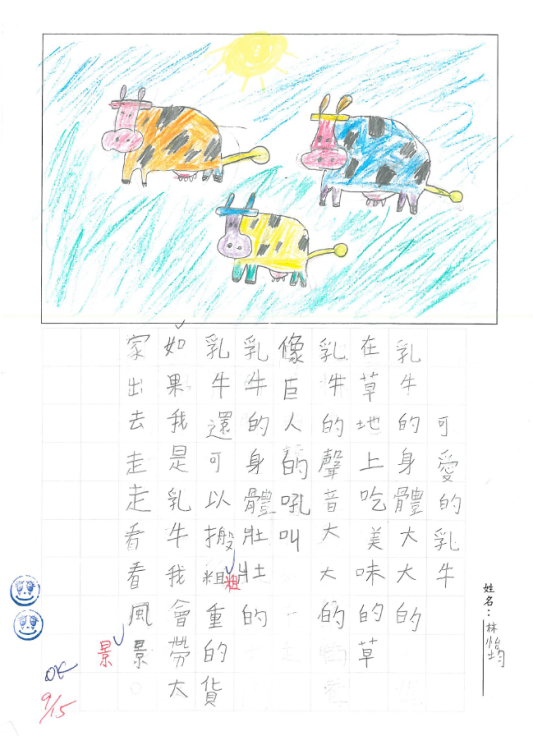 可愛的乳牛
乳牛的身體大大的
在草地上吃美味的草
乳牛的聲音大大的
像巨人的吼叫
乳牛的身體壯壯的
乳牛還可以搬粗重的貨
如果我是乳牛我會帶大
家出去走走看看風景。
粗
景
姓名：林怡均
OK
9/15